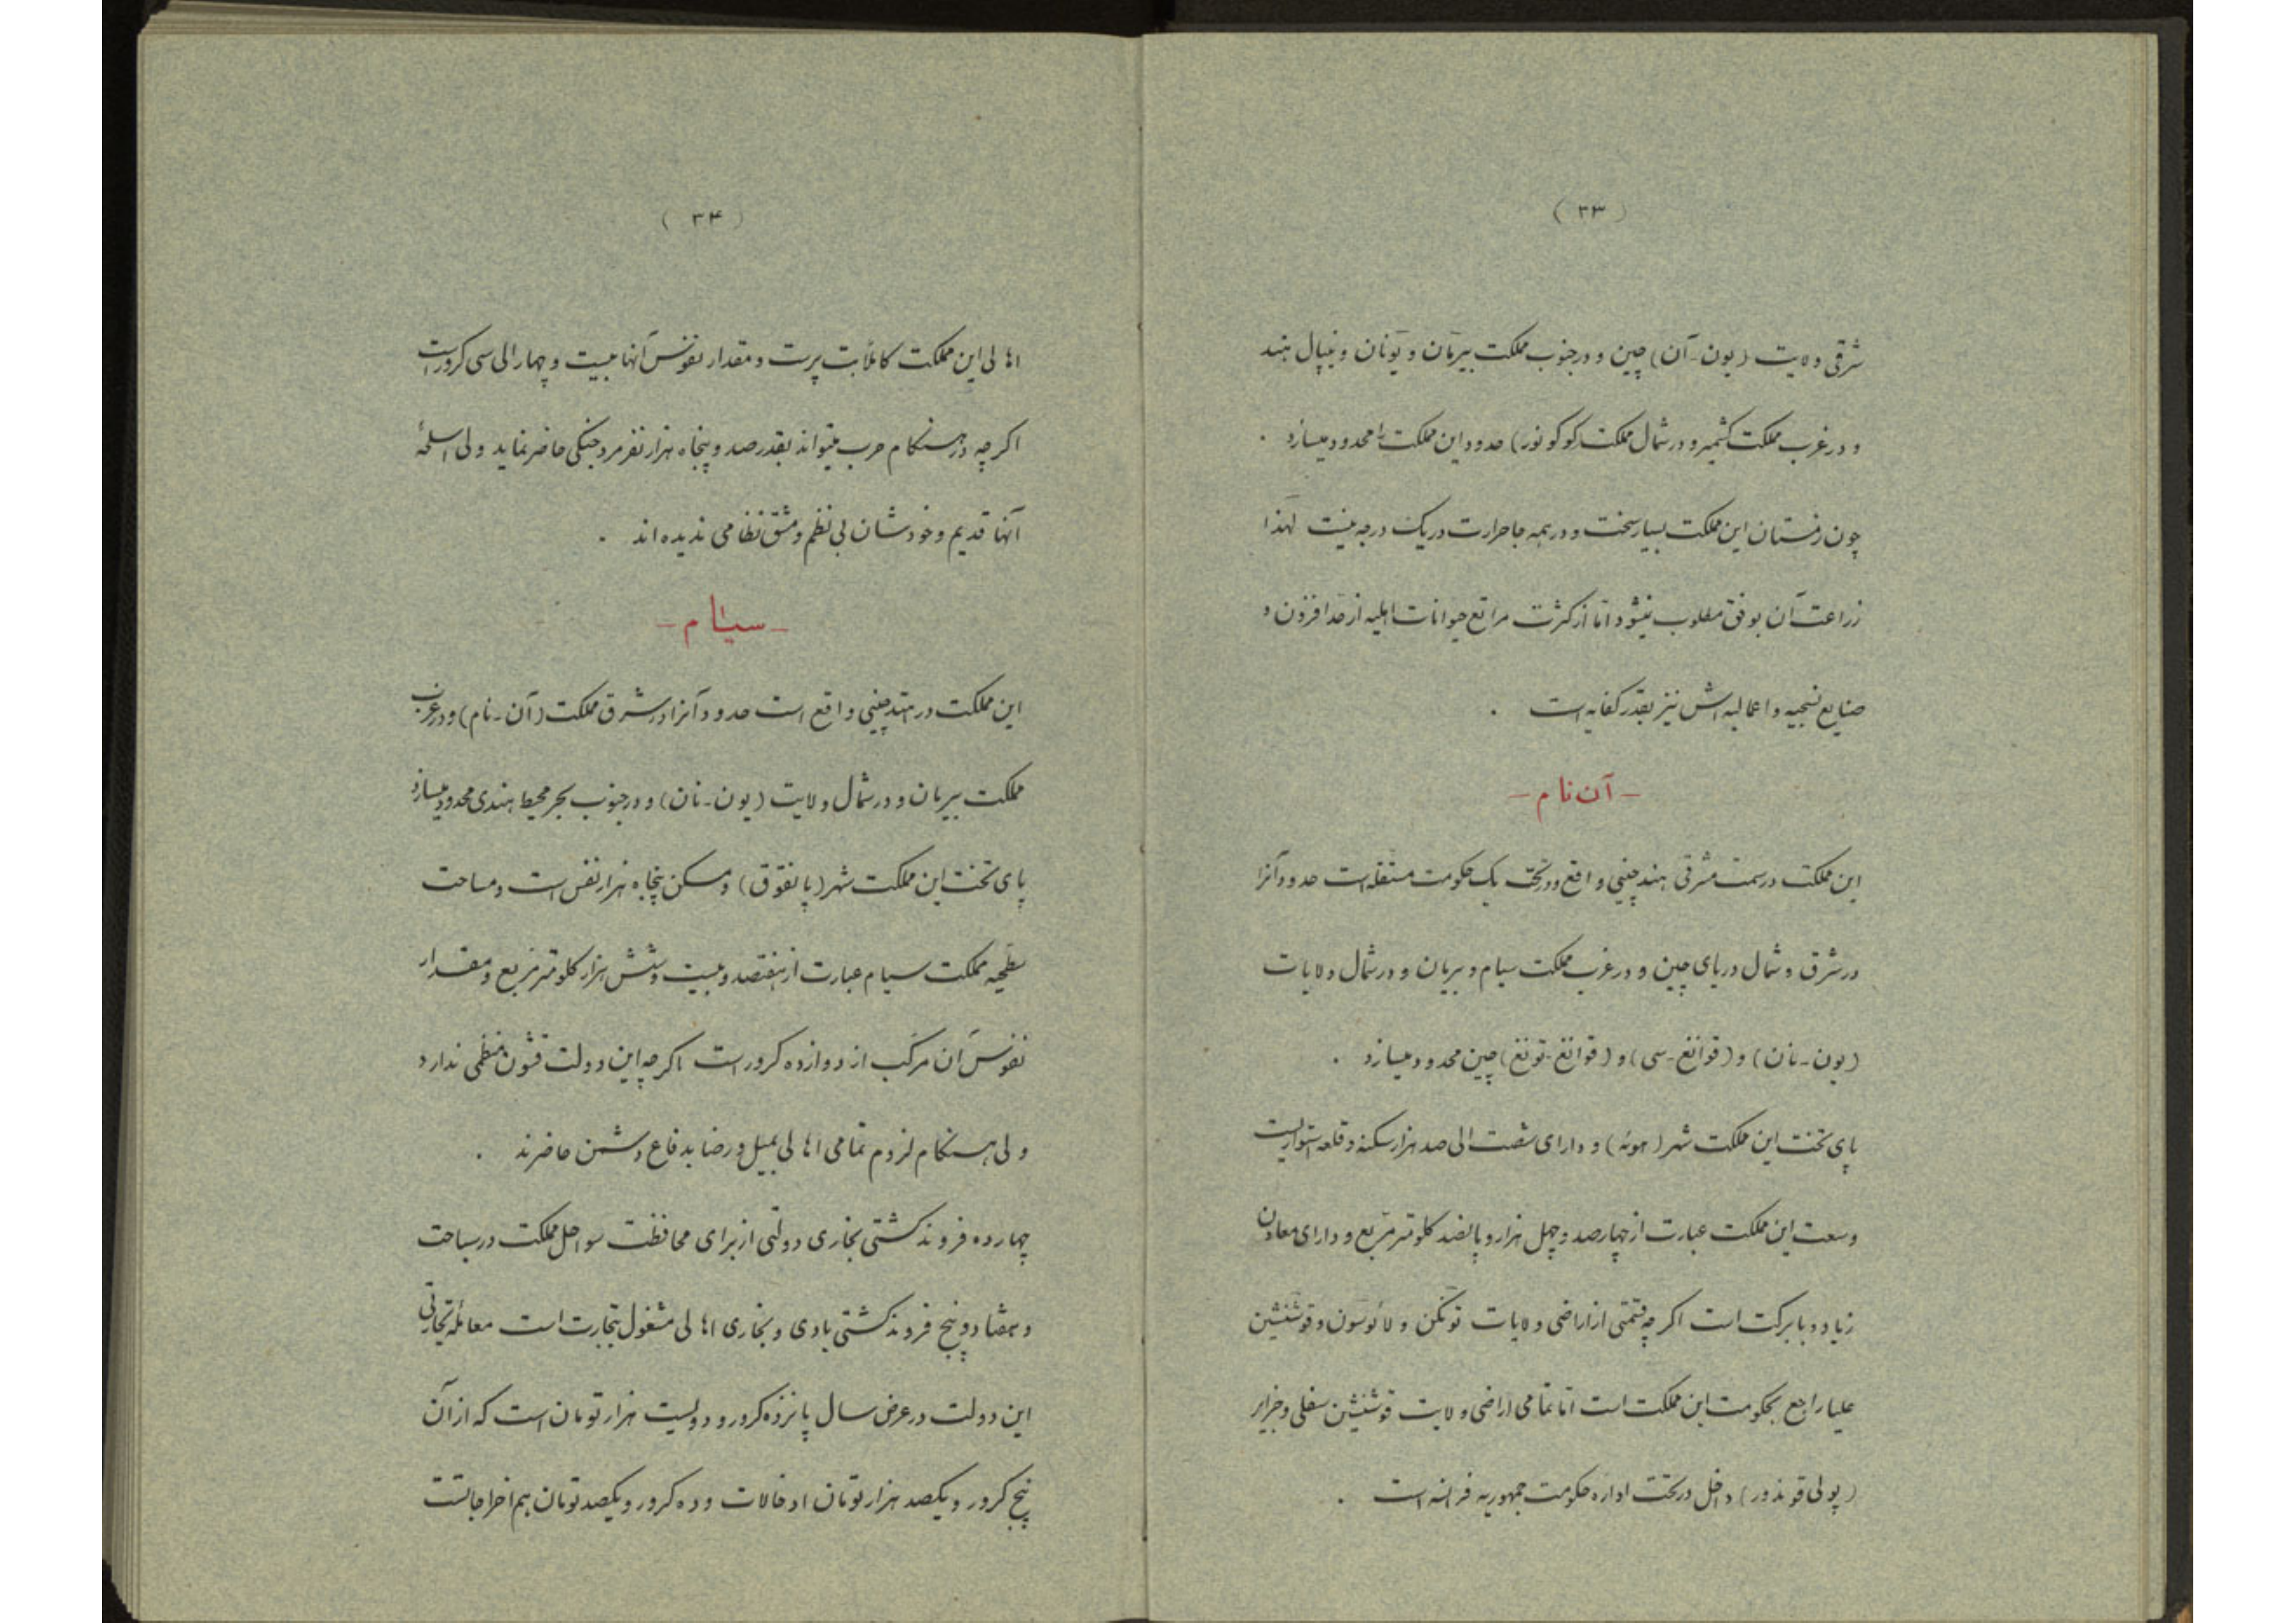 ( ۳۳ )
شرقی ولایت (یون-آن) چین و در جنوب مملکت بیرمان و یونان و نیپال هند
و در غرب مملکت کشمیر و در شمال مملکت کوکونور) حدود این مملکت را محدود میسازد .
چون زمستان این مملکت بسیار سخت و در همه جا حرارت در یک درجه نیست لهذا
زراعت آن بوفق مطلوب نمیشود اما از کثرت مراتع حیوانات اهلیه از حد افزون و
صنایع نسجیه و اعمالیه اش نیز بقدر کفایه است .
- آن نام -
این مملکت در سمت مشرقی هند چینی واقع و در تحت یک حکومت مستقله است حدود آنرا
در شرق و شمال دریای چین و در غرب مملکت سیام و بیرمان و در شمال ولایات
(یون-نان) و (قوانغ-سی) و (قوانغ-تونغ) چین محدود میسازد .
پای تخت این مملکت شهر (هوئه) و دارای شصت الی صد هزار سکنه و قلعه استواریست
وسعت این مملکت عبارت از چهارصد و چهل هزار و پانصد کلومتر مربع و دارای معادن
زیاد و با برکت است اگر چه قسمتی از اراضی ولایات تونکن و لائوسون و قوشنشین
علیا راجع بحکومت این مملکت است اما تمامی اراضی ولایت قوشنشین سفلی و جزایر
(پولی قوندور) داخل در تحت اداره حکومت جمهوریه فرانسه است .
( ۳۴ )
اهالی این مملکت کاملاً بت پرست و مقدار نفوس آنها بیست و چهار الی سی کرور است
اگر چه در هنگام حرب میتواند بقدر صد و پنجاه هزار نفر مرد جنگی حاضر نماید ولی اسلحهٔ
آنها قدیم و خودشان بی نظم و مشق نظامی ندیده اند .
- سیام -
این مملکت در هند چینی واقع است حدود آنرا در شرق مملکت (آن-نام) و در غرب
مملکت بیرمان و در شمال ولایت (یون-نان) و در جنوب بحر محیط هندی محدود میسازد
پای تخت این مملکت شهر (بانقوق) و مسکن پنجاه هزار نفس است و مساحت
سطحیه مملکت سیام عبارت از هفتصد و بیست و شش هزار کلومتر مربع و مقدار
نفوس آن مرکب از دوازده کرور است اگر چه این دولت قشون منظمی ندارد
ولی هنگام لزوم تمامی اهالی بمیل و رضا بدفاع دشمن حاضرند .
چهارده فروند کشتی بخاری دولتی از برای محافظت سواحل مملکت در سیاحت
و هفتاد و پنج فروند کشتی بادی و بخاری اهالی مشغول تجارت است معامله تجارتی
این دولت در عرض سال پانزده کرور و دویست هزار تومان است که از آن
پنج کرور و یکصد هزار تومان ادخالات و ده کرور و یکصد تومان هم اخراجاتست